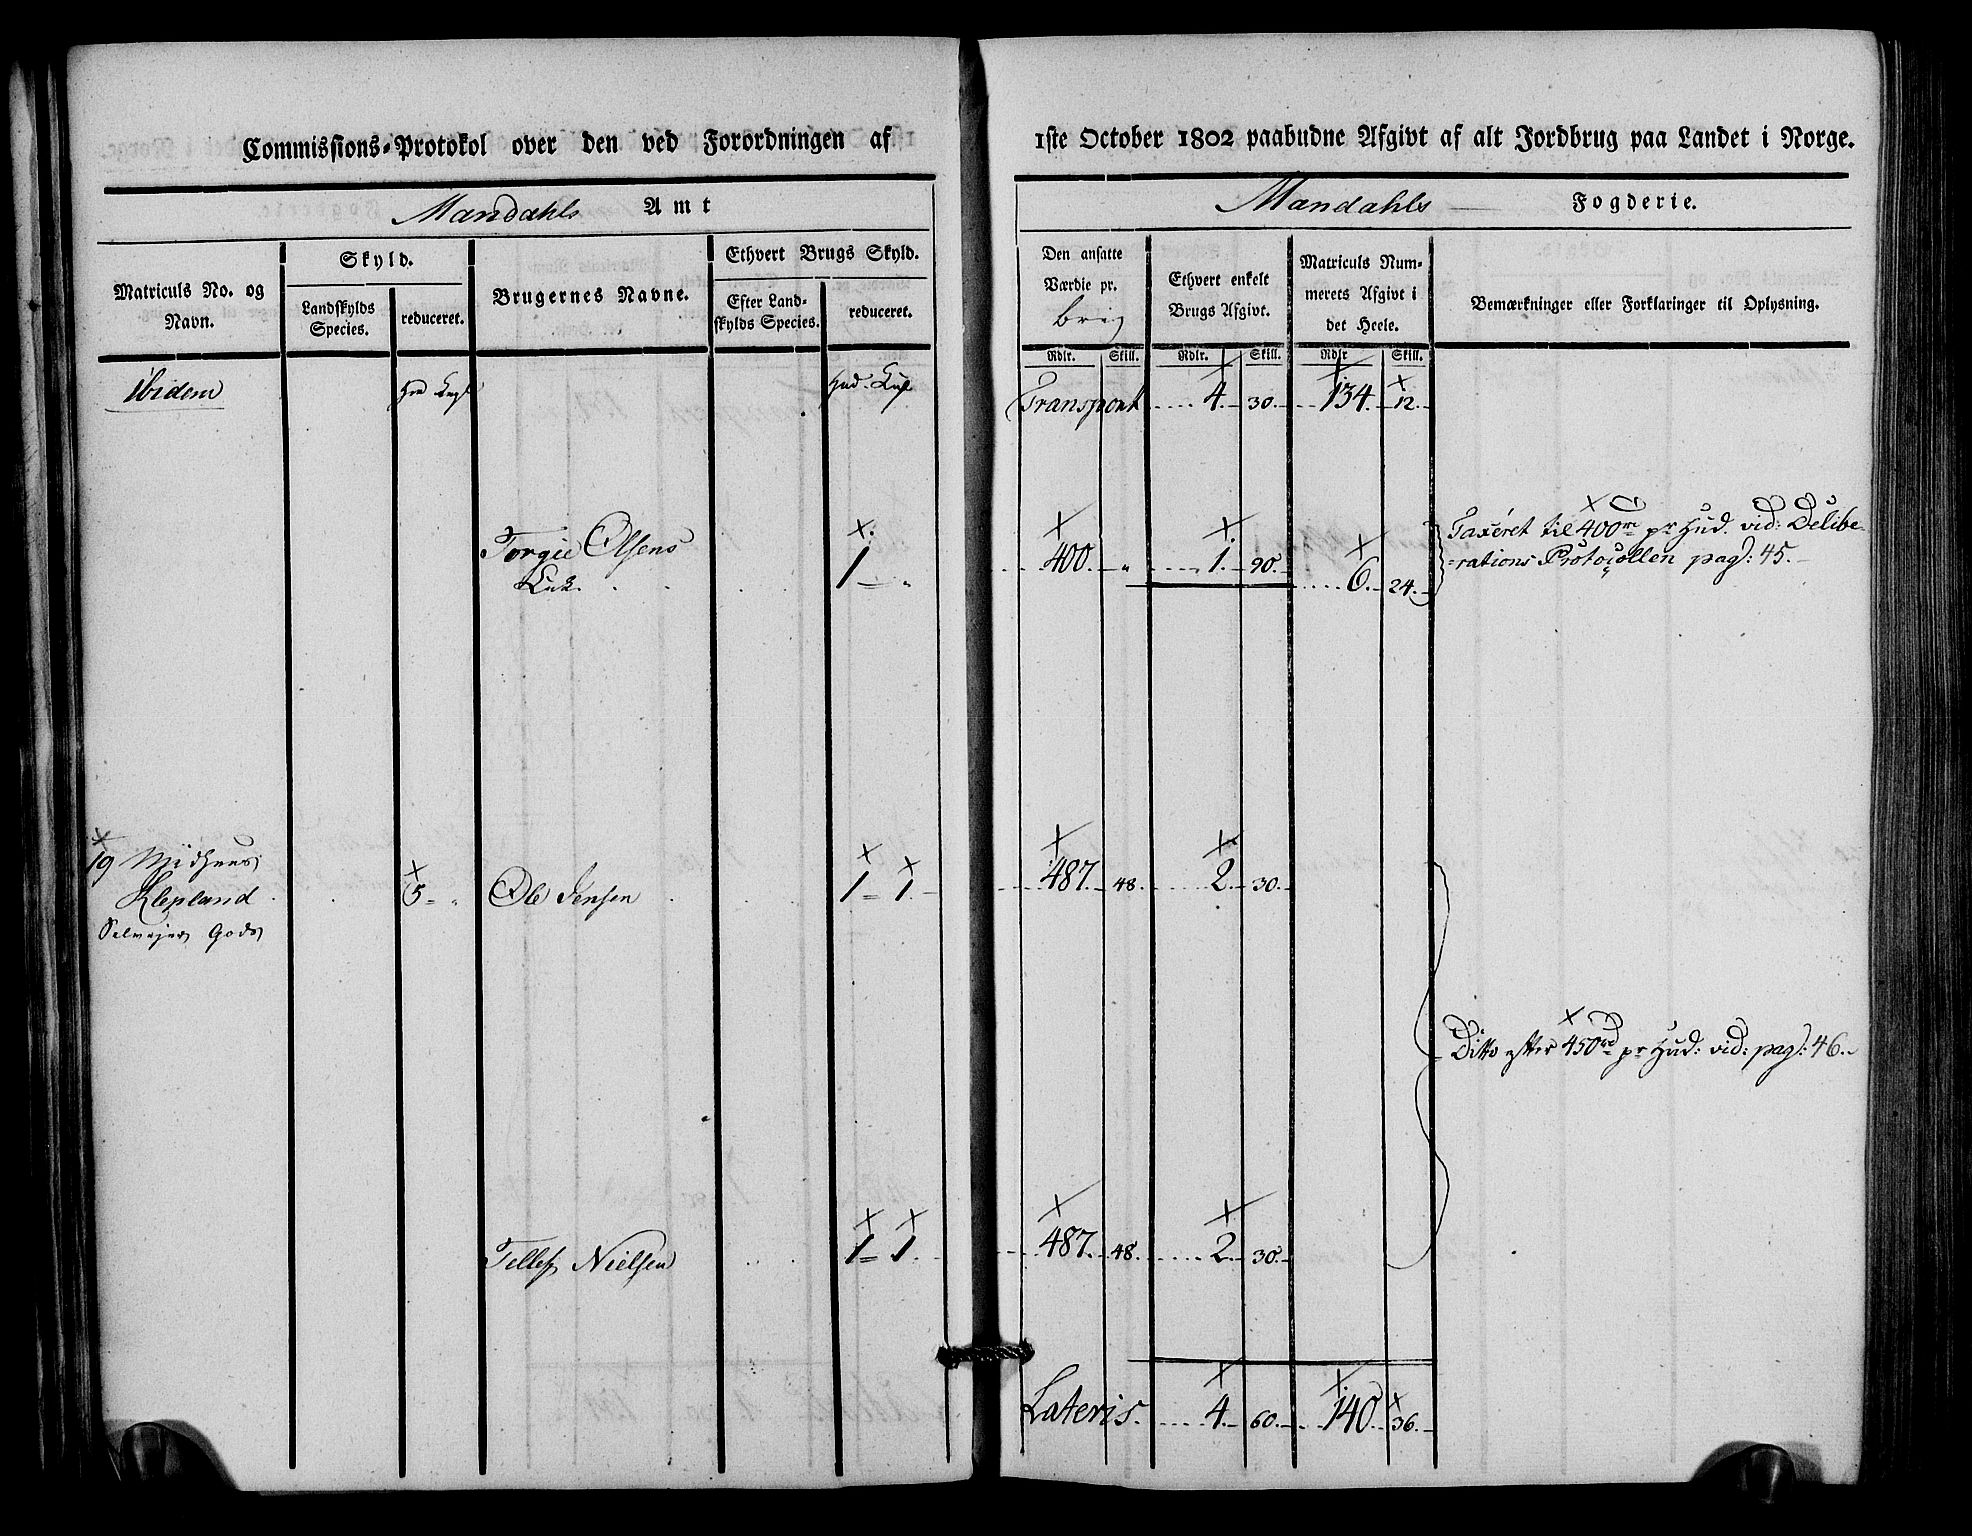 Commissions-Protokol over den ved Forordningen af
1ste October 1802 paabudne Afgivt af alt Jordbrug paa Landet i Norge.
Mandahls Amt
Mandahls Fogderie.
Matriculs No. og Navn.
Skyld.
Landskylds Species.
reduceret.
Brugernes Navne.
Ethvert Brugs Skyld.
Efter Land-
skylds Species.
reduceret.
Den ansatte
Værdie pr.
Ethvert enkelt
Brugs Afgivt.
Matriculs Num-
merets Afgivt i
det Heele.
Bemærkninger eller Forklaringer til Oplysning.
Rdlr. Skill. Rdlr. Skill. Rdlr Skill.
ibidem
Transport 4. 30. 134. 12.
Torgie Olsens
Enk. 1 „ 400. „ 1. 90. 6. 24.
Taxéret til 400 pr Hud. vid: Delibe-
rations Protocollen pag: 45.
19
Klepland 5 „ Ole Jensen 1 1. 487. 48. 2. 30.
Selvejer Gods
Ditto efter 450 pr Hud: vid: pag: 46.
Tellef Nielsen 1 1. 487. 48. 2. 30.
Lateris. 4. 60. 140. 36.